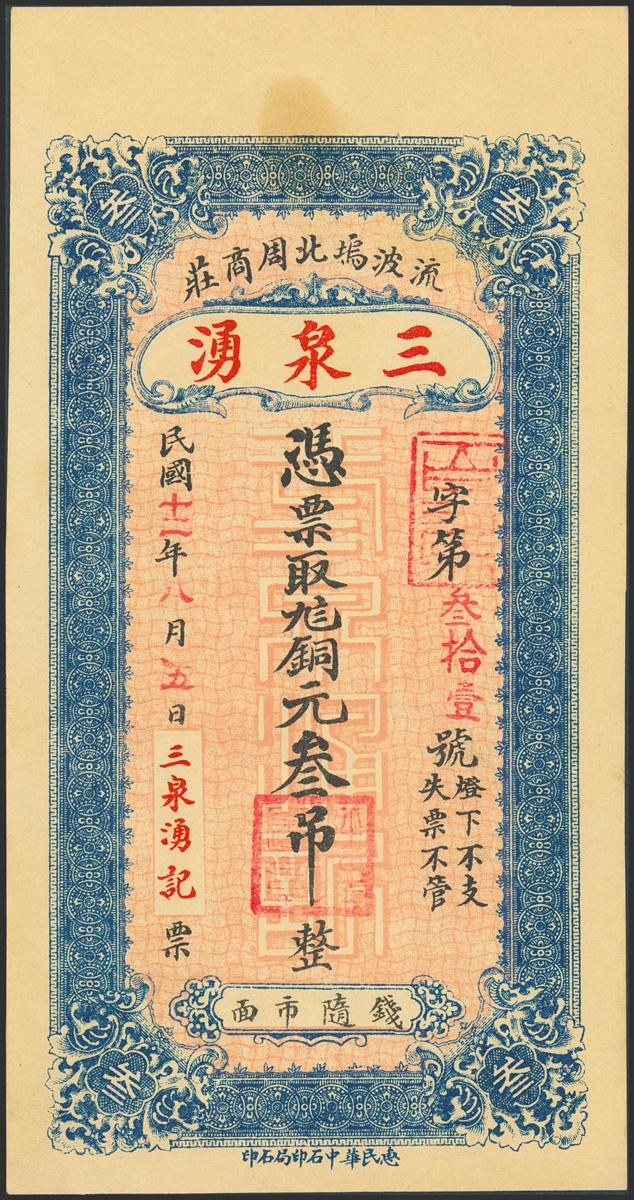 流波塢北周商莊
三泉湧
字第叁拾壹號
燈下不支
失票不管
憑票取銅元叁吊整
民國十二年八月五日三泉湧記票
錢隨市面
惠民華中石印局石印